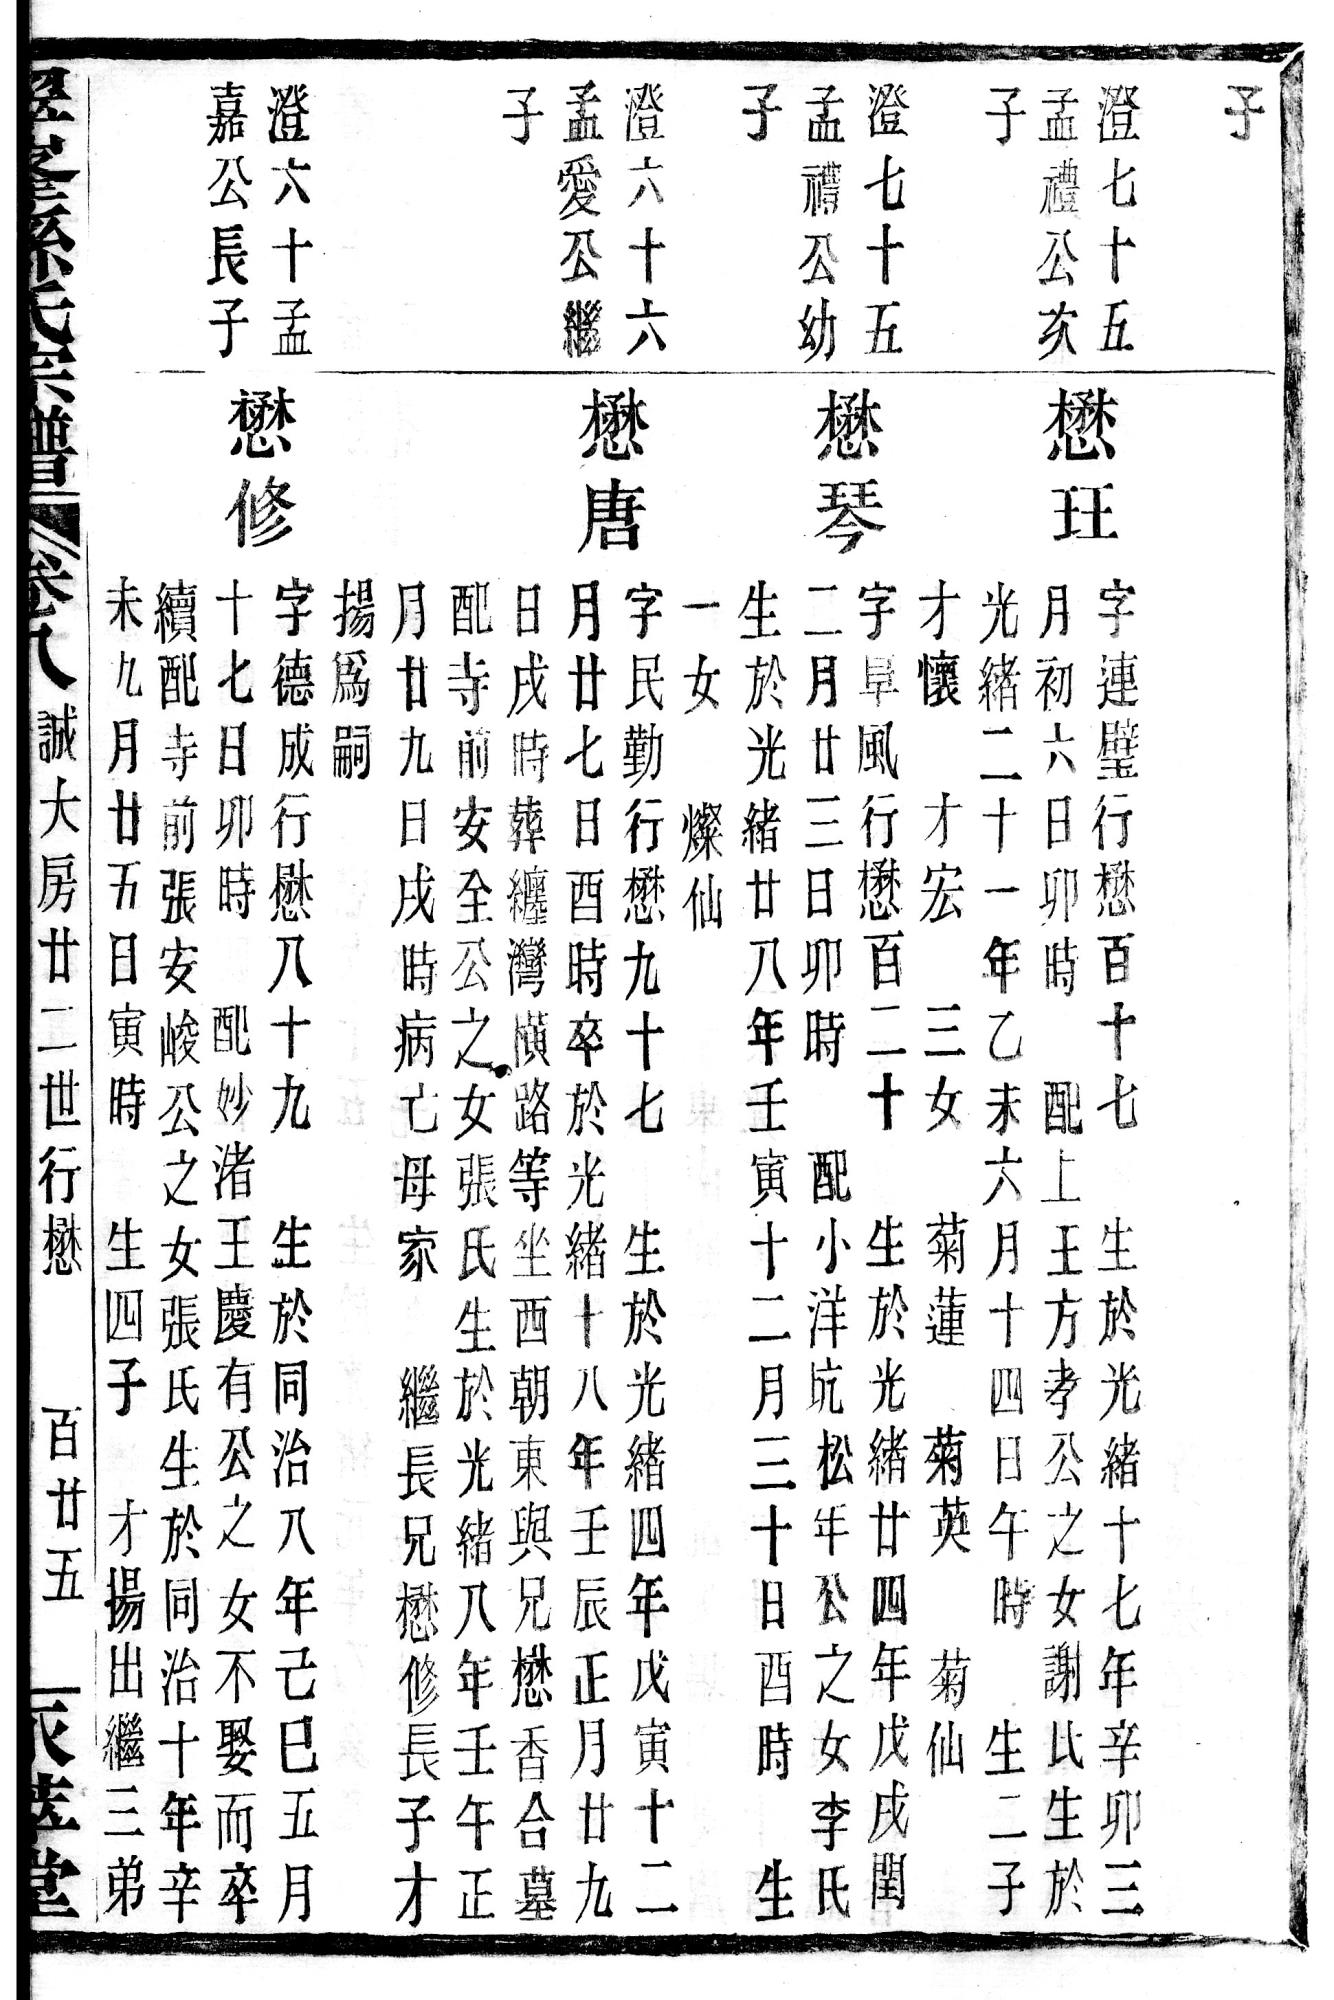 子
澄七十五
孟禮公次
子
懋玨
字連璧行懋百十七 生於光緒十七年辛卯三
月初六日卯時 配上王方孝公之女謝氏生於
光緒二十一年乙未六月十四日午時 生二子
才懷 才宏 三女 菊蓮 菊英 菊仙
澄七十五
孟禮公幼
子
懋琴
字阜風行懋百二十 生於光緒廿四年戊戌閏
二月廿三日卯時 配小洋坑松年公之女李氏
生於光緒廿八年壬寅十二月三十日酉時 生
一女 燦仙
澄六十六
孟愛公繼
子
懋唐
字民勤行懋九十七 生於光緒四年戊寅十二
月廿七日酉時卒於光緒十八年壬辰正月廿九
日戌時葬纏灣橫路等坐西朝東與兄懋香合墓
配寺前安全公之女張氏生於光緒八年壬午正
月廿九日戌時病亡母家 繼長兄懋修長子才
揚爲嗣
澄六十孟
嘉公長子
懋修
字德成行懋八十九 生於同治八年己巳五月
十七日卯時 配妙渚王慶有公之女不娶而卒
續配寺前張安峻公之女張氏生於同治十年辛
未九月廿五日寅時 生四子 才揚出繼三弟
孫氏宗譜 卷八 誠大房廿二世行懋 百廿五 堂